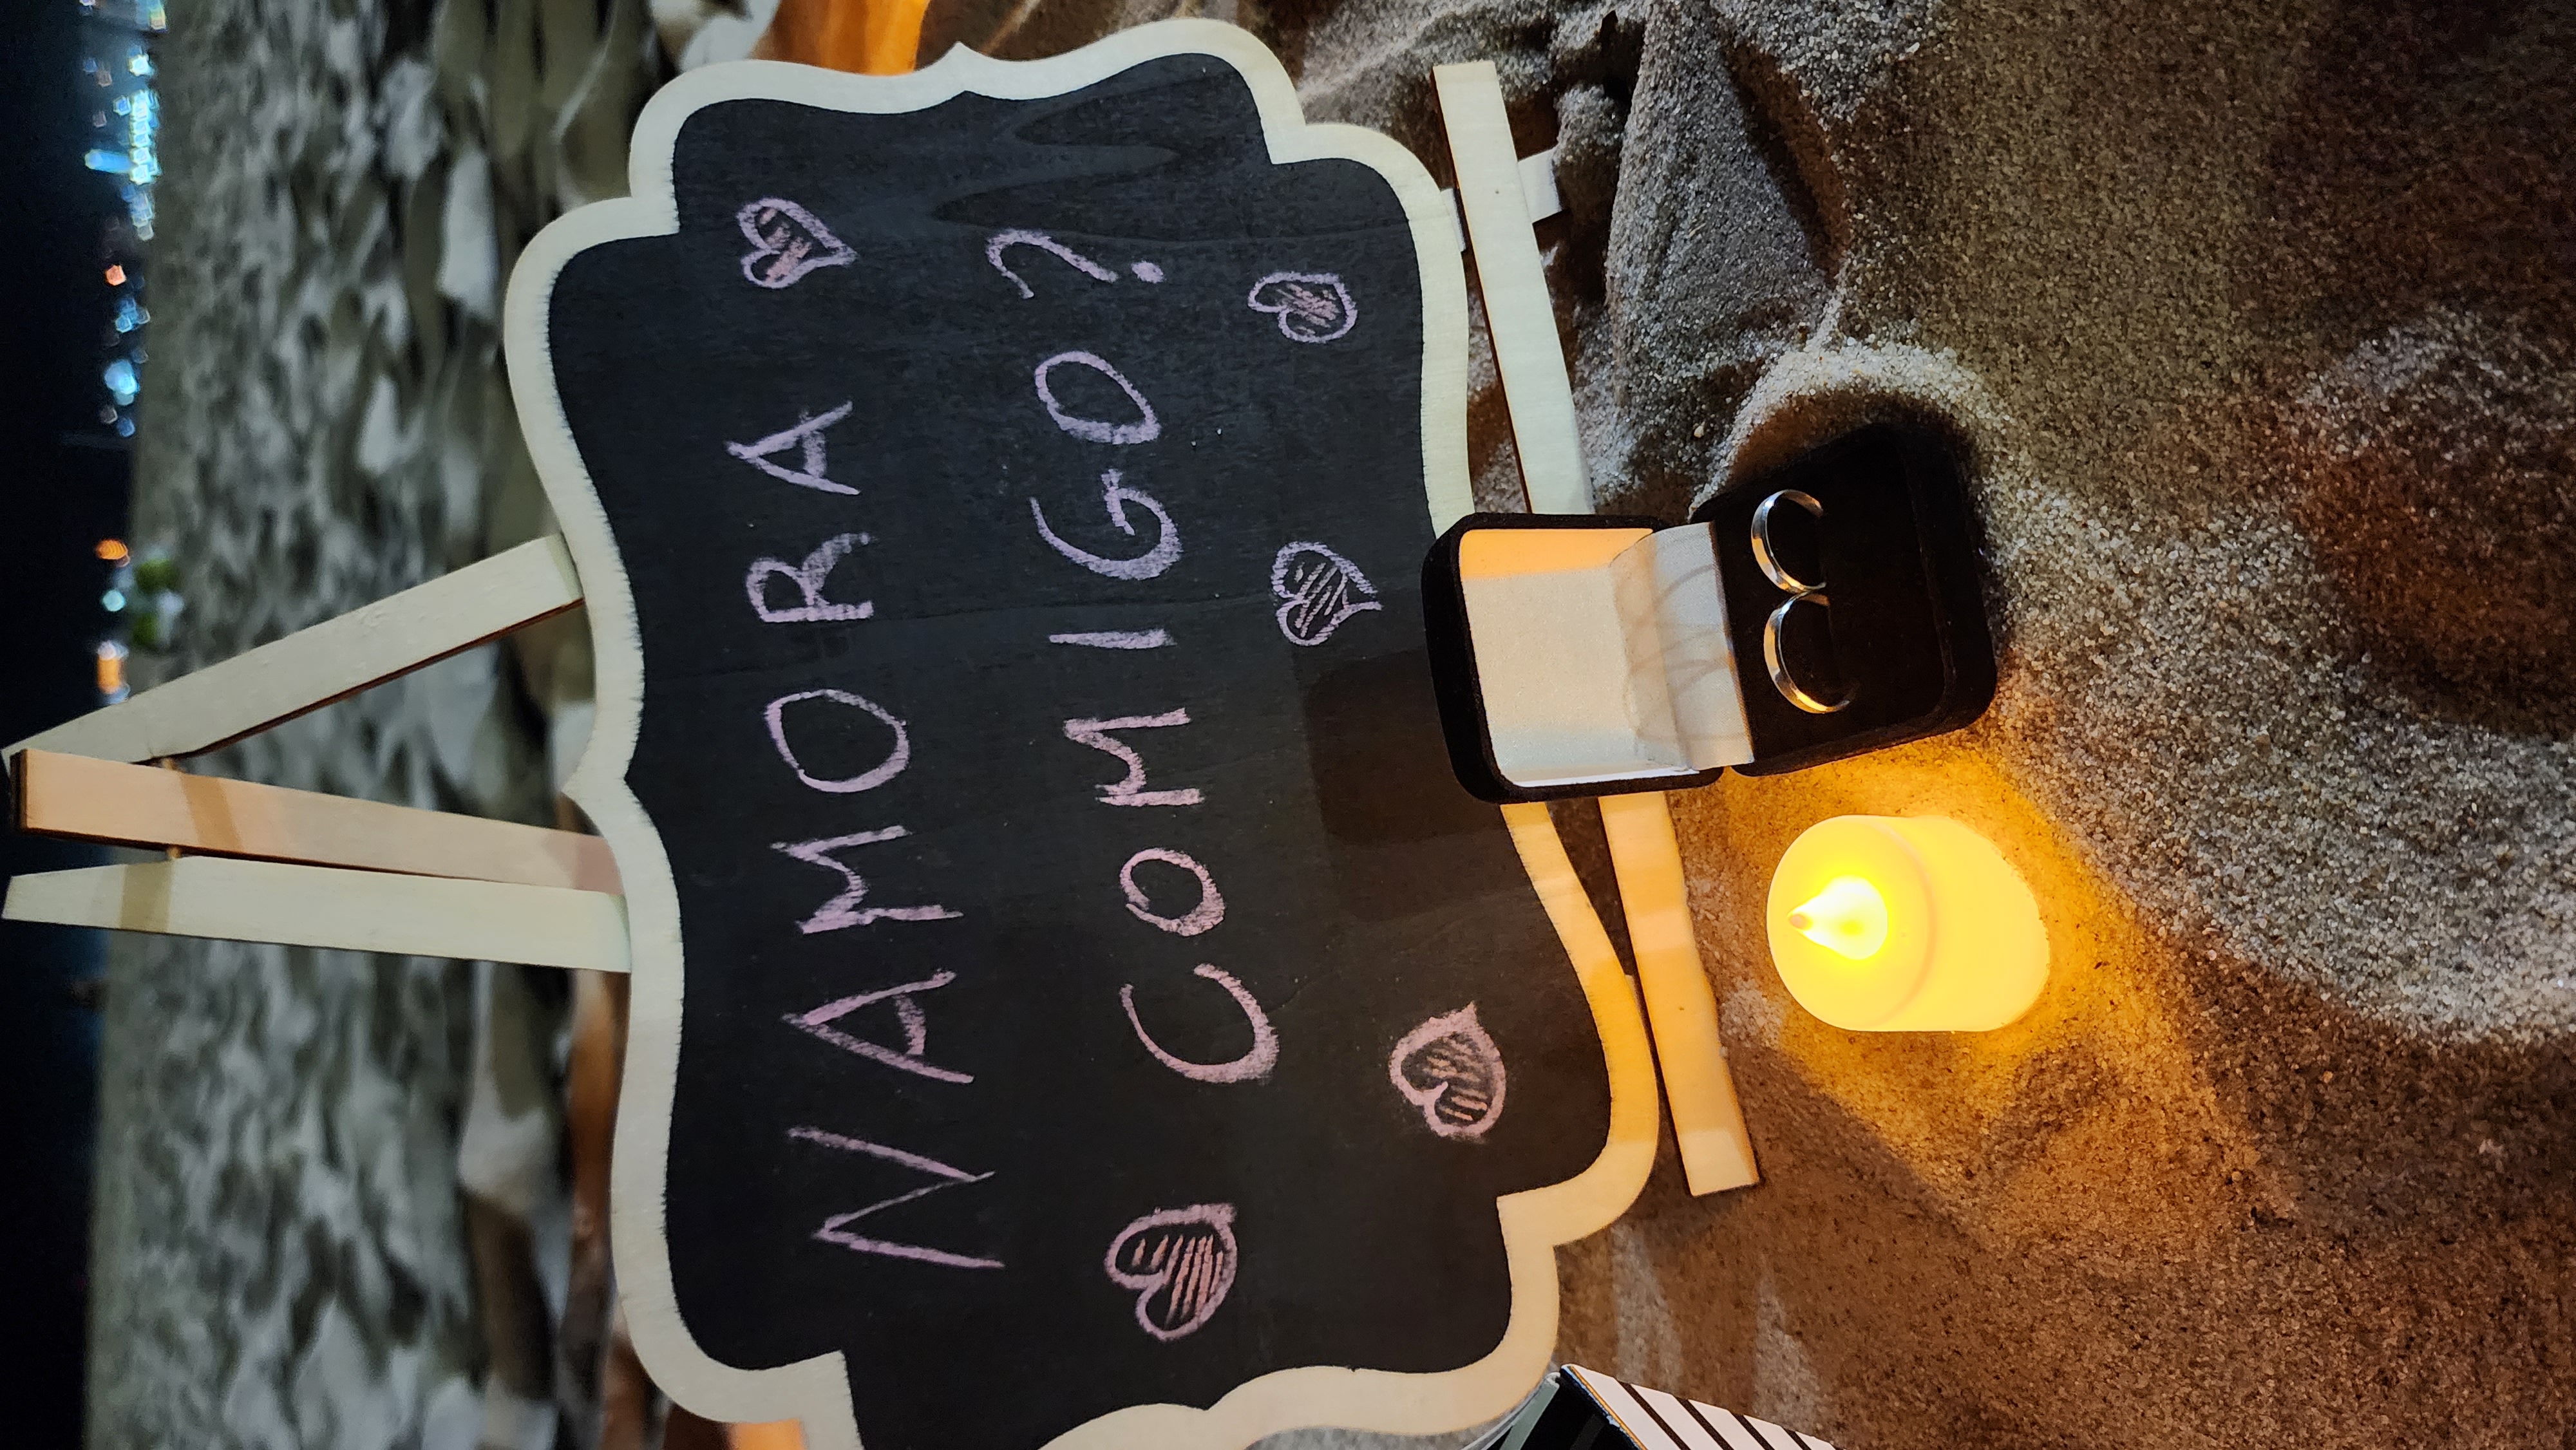 NAMORA
COMIGO?